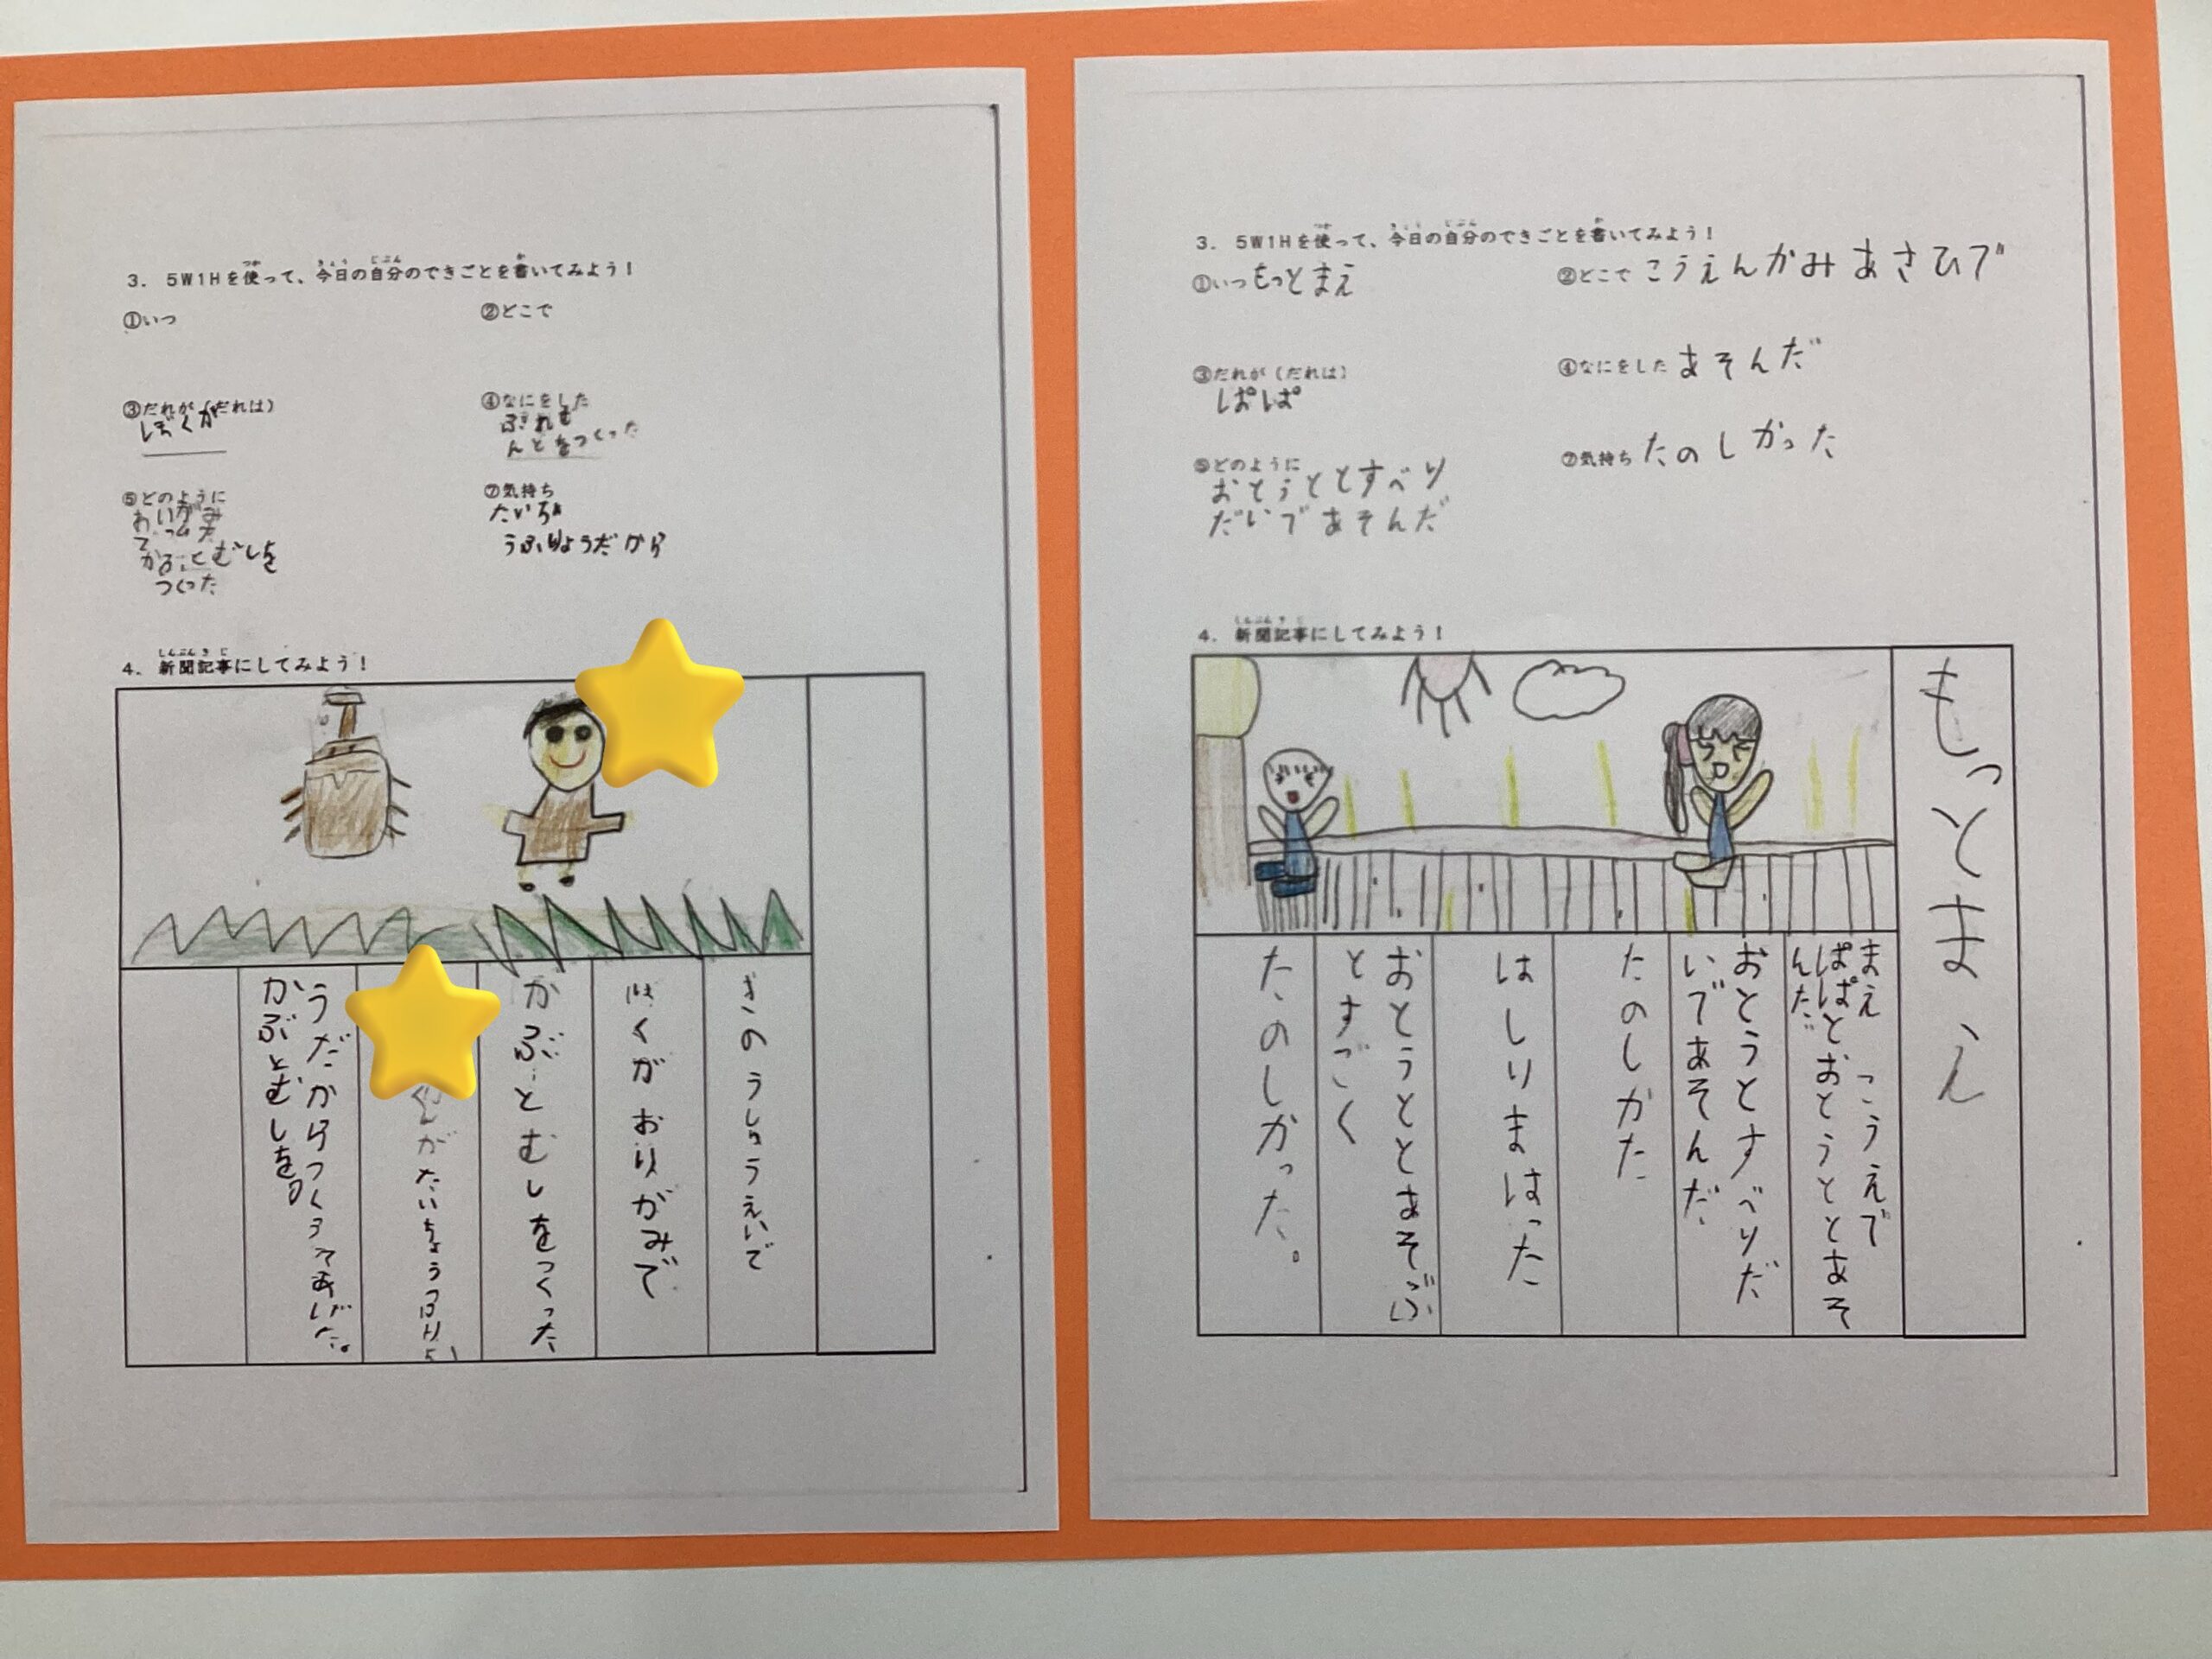 3. 5W1Hを使って、今日の自分のできごとを書いてみよう！
①いつ
②どこで
③だれが（だれは）
ぼくが
④なにをした
ぷれぜ
んとをつくった
⑤どのように
つくった
⑦気持ち
たいちょ
うふりょうだから
4. 新聞記事にしてみよう！
きのうしゅうえいで
ぼくがおりがみで
かぶとむしをつくった
くんがたいちょうふりょ
うだからつくってあげた。
かぶとむしをの
3. 5W1Hを使って、今日の自分のできごとを書いてみよう！
①いつもっとまえ
②どこでこうえんかみあさひで
③だれが（だれは）
ぱぱ
④なにをしたあそんだ
⑤どのように
おとうととすべり
だいであそんだ
⑦気持ちたのしかった
4. 新聞記事にしてみよう！
もっとまえ
まえ こうえで
ぱぱとおとうととあそ
んだ
おとうとすべりだ
いであそんだ
たのしかた
はしりまはった
おとうととあそぶ
とすごく
たのしかった。